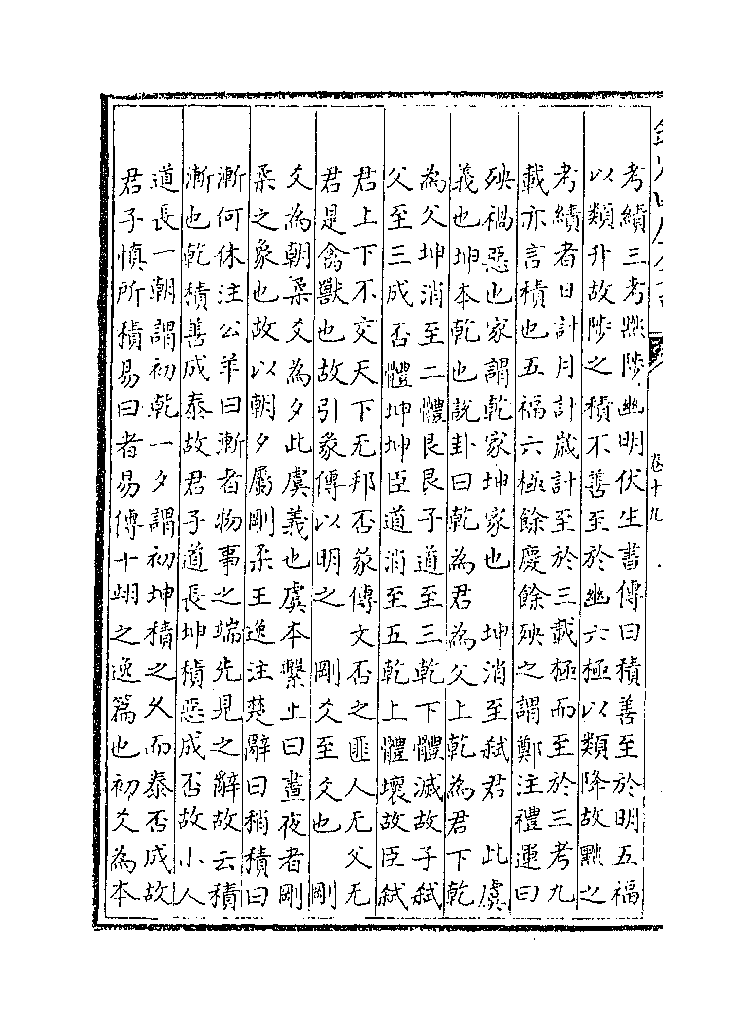 卷十九
考績三考黜陟幽明伏生書傳曰積善至於明五福
以類升故陟之積不善至於幽六極以類降故黜之
考績者日計月計歲計至於三載極而至於三考九
載亦言積也五福六極餘慶餘殃之謂鄭注禮運曰
殃禍惡也家謂乾家坤家也　坤消至弑君　此虞
義也坤本乾也說卦曰乾為君為父上乾為君下乾
為父坤消至二體艮艮子道至三乾下體滅故子弑
父至三成否體坤坤臣道消至五乾上體壞故臣弑
君上下不交天下无邦否彖傳文否之匪人无父无
君是禽獸也故引彖傳以明之　剛爻至爻也　剛
爻為朝柔爻為夕此虞義也虞本繫上曰晝夜者剛
柔之象也故以朝夕屬剛柔王逸注楚辭曰稍積曰
漸何休注公羊曰漸者物事之端先見之辭故云積
漸也乾積善成泰故君子道長坤積惡成否故小人
道長一朝謂初乾一夕謂初坤積之久而泰否成故
君子慎所積易曰者易傳十翊之逸篇也初爻為本